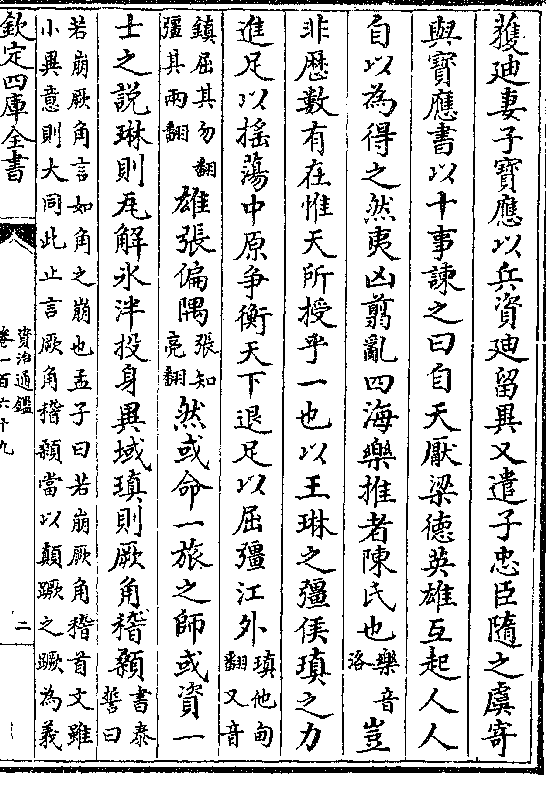 獲廸妻子寶應以兵資廸留異又遣子忠臣隨之虞寄
與寶應書以十事諫之曰自天厭梁德英雄互起人人
自以為得之然夷凶翦亂四海樂推者陳氏也樂音洛豈
非歴數有在惟天所授乎一也以王琳之彊侯瑱之力
進足以揺蕩中原爭衡天下退足以屈彊江外瑱他甸翻又音
鎮屈其勿翻彊其兩翻雄張偏隅張知亮翻然或命一旅之師或資一
士之說琳則瓦解氷泮投身異域瑱則厥角稽顙書泰誓曰
若崩厥角言如角之崩也孟子曰若崩厥角稽首文雖
小異意則大同此止言厥角稽顙當以顛蹶之蹶為義
欽定四庫全書
資治通鑑
卷一百六十九
二